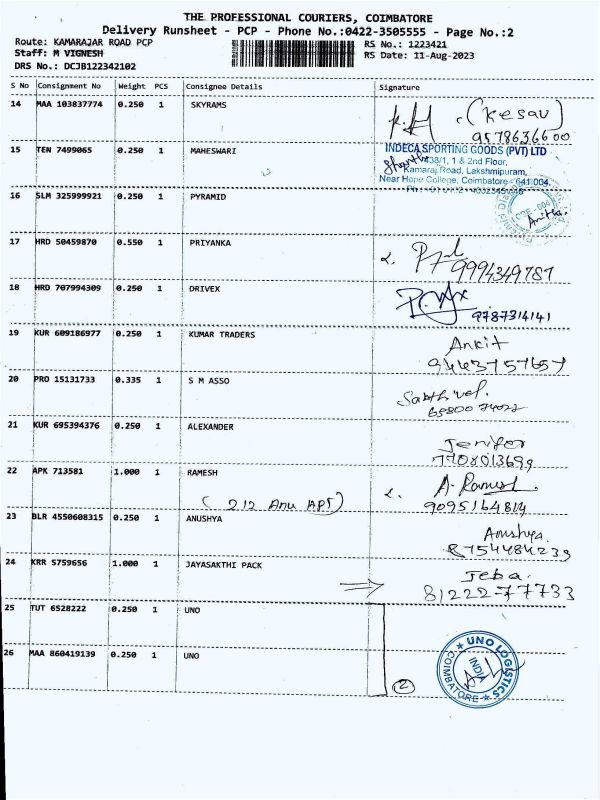 THE PROFESSIONAL COURIERS, COIMBATORE
Delivery Runsheet - PCP - Phone No.:0422-3505555 - Page No.:2
Route: KAMARAJAR ROAD PCP
RS No.: 1223421
Staff: M VIGNESH
RS Date: 11-Aug-2023
DRS No.: DCJB122342102
S No Consignment No Weight PCS Consignee Details Signature
14 MAA 103837774 0.250 1 SKYRAMS
(Kesav)
9578636600
15 TEN 7499065 0.250 1 MAHESWARI
INDECA SPORTING GOODS (PVT) LTD
438/1, 1 & 2nd Floor,
Kamaraj Road, Lakshmipuram,
Near Hope College, Coimbatore - 641 004.
16 SLM 325999921 0.250 1 PYRAMID
Anitha.
17 HRD 50459870 0.550 1 PRIYANKA
9994349787
18 HRD 707994309 0.250 1 DRIVEX
9787314141
19 KUR 609186977 0.250 1 KUMAR TRADERS
Ankit
9443757657
20 PRO 15131733 0.335 1 S M ASSO
Sakthivel.
21 KUR 695394376 0.250 1 ALEXANDER
Jenifer
7708013699
22 APK 713581 1.000 1 RAMESH
A. Ramesh.
(212 Anu APT)
9095164814
23 BLR 4550608315 0.250 1 ANUSHYA
Anushya.
8754484239
24 KRR 5759656 1.000 1 JAYASAKTHI PACK
Jeba.
8122277733
25 TUT 6528222 0.250 1 UNO
26 MAA 860419139 0.250 1 UNO
UNO LOGISTICS
INDIA
COIMBATORE
2